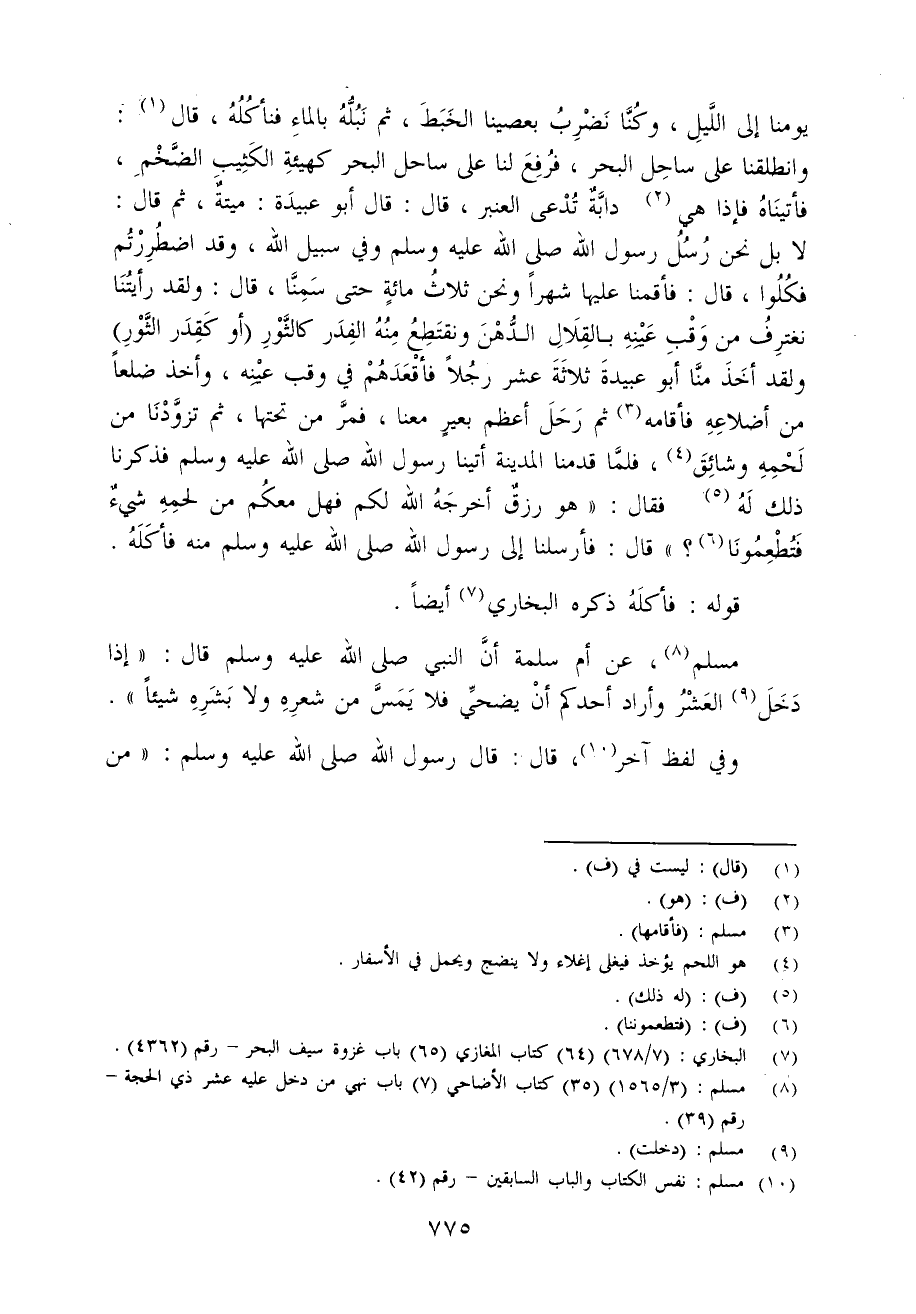 يومنا إلى اللَّيلِ ، وكُنَّا نَضْرِبُ بعصينا الخَبَطَ ، ثم نَبُلُّهُ بالماءِ فنأكُلُهُ ، قال (١) :
وانطلقنا على ساحِل البحر ، فرُفِعَ لنا على ساحل البحر كهيئةِ الكَثِيبِ الضَّخْمِ ،
فأتينَاهُ فإذا هي (٢) دابَّةٌ تُدْعى العنبر ، قال : قال أبو عبيدَة : ميتةٌ ، ثم قال :
لا بل نحن رُسُلُ رسول الله صلى الله عليه وسلم وفي سبيل الله ، وقد اضطُرِرْتُم
فكُلُوا ، قال : فأقمنا عليها شهراً ونحن ثلاثُ مائةٍ حتى سَمِنَّا ، قال : ولقد رأيتُنَا
نغترِفُ من وَقْبِ عَيْنِهِ بالقِلَالِ الدُّهْنَ ونقتَطِعُ مِنْهُ الفِدَر كالثَّوْرِ (أو كَقِدَر الثَّوْرِ)
ولقد أخَذَ منَّا أبو عبيدةَ ثلاثَةَ عشر رجُلاً فأقْعَدَهُمْ في وقب عيْنِه ، وأخذ ضلعاً
من أضلاعِهِ فأقامه (٣) ثم رَحَلَ أعظم بعيرٍ معنا ، فمرَّ من تحتها ، ثم تزوَّدْنَا من
لَحْمِهِ وشائِقَ (٤) ، فلمَّا قدمنا المدينة أتينا رسول الله صلى الله عليه وسلم فذكرنا
ذلك لَهُ (٥) فقال : « هو رزقٌ أخرجَهُ الله لكم فهل معكُم من لحمِهِ شيءٌ
فَتُطْعِمُونَا (٦) ؟ » قال : فأرسلنا إلى رسول الله صلى الله عليه وسلم منه فأكَلَهُ .
قوله : فأكلَهُ ذكره البخاري (٧) أيضاً .
مسلم (٨) ، عن أم سلمة أنَّ النبي صلى الله عليه وسلم قال : « إذا
دَخَلَ (٩) العَشْرُ وأراد أحدكم أنْ يضحيِّ فلا يَمَسَّ من شعرِهِ ولا بَشَرِهِ شيئاً » .
وفي لفظ آخر (١٠) ، قال : قال رسول الله صلى الله عليه وسلم : « من
(١) (قال) : ليست في (ف) .
(٢) (ف) : (هو) .
(٣) مسلم : (فأقامها) .
(٤) هو اللحم يؤخذ فيغلى إغلاء ولا ينضج ويحمل في الأسفار .
(٥) (ف) : (له ذلك) .
(٦) (ف) : (فتطعموننا) .
(٧) البخاري : (٦٧٨/٧) (٦٤) كتاب المغازي (٦٥) باب غزوة سيف البحر – رقم (٤٣٦٢) .
(٨) مسلم : (١٥٦٥/٣) (٣٥) كتاب الأضاحي (٧) باب نهي من دخل عليه عشر ذي الحجة –
رقم (٣٩) .
(٩) مسلم : (دخلت) .
(١٠) مسلم : نفس الكتاب والباب السابقين – رقم (٤٢) .
٧٧٥